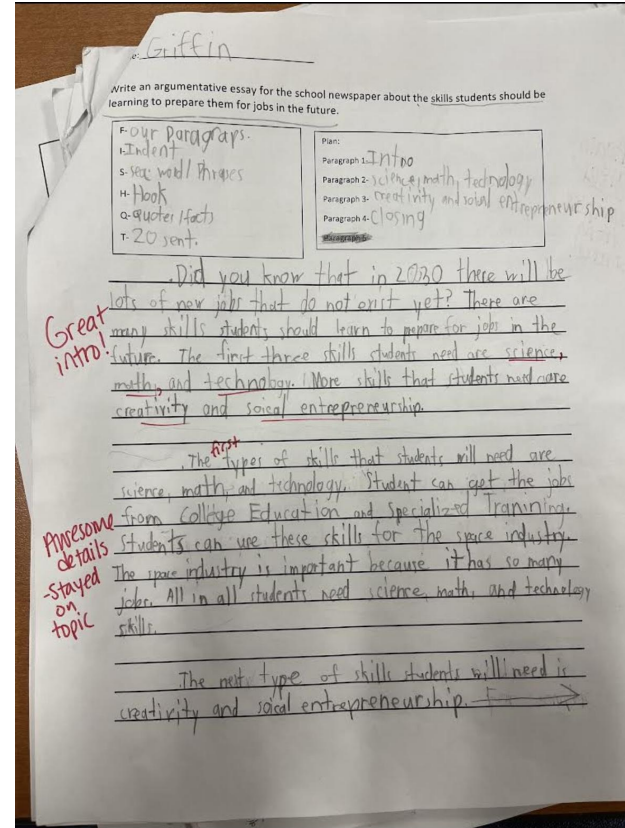 e: Griffin
Write an argumentative essay for the school newspaper about the skills students should be
learning to prepare them for jobs in the future.
F-our Paragraps.
I-Indent
S-sea: word/Phrases
H-Hook
Q-quotes/facts
T-20 sent.
Plan:
Paragraph 1-Intro
Paragraph 2-science, math, technology
Paragraph 3-creativity and soical entrepreneurship
Paragraph 4-Closing
Paragraph 5-
Great
intro!
Did you know that in 2030 there will be
lots of new jobs that do not exist yet? There are
many skills students should learn to prepare for jobs in the
future. The first three skills students need are science,
math, and technology. More skills that students need are
creativity and soical entrepreneurship.
first
The types of skills that students will need are
science, math, and technology. Student can get the jobs
from Collge Education and Specialized Tranining.
Awesome
details
-Stayed
on
topic
Students can use these skills for the space industry.
The space industry is important because it has so many
jobs. All in all students need science, math, and technology
skills.
The next type of skills students will need is
creativity and soical entrepreneurship.